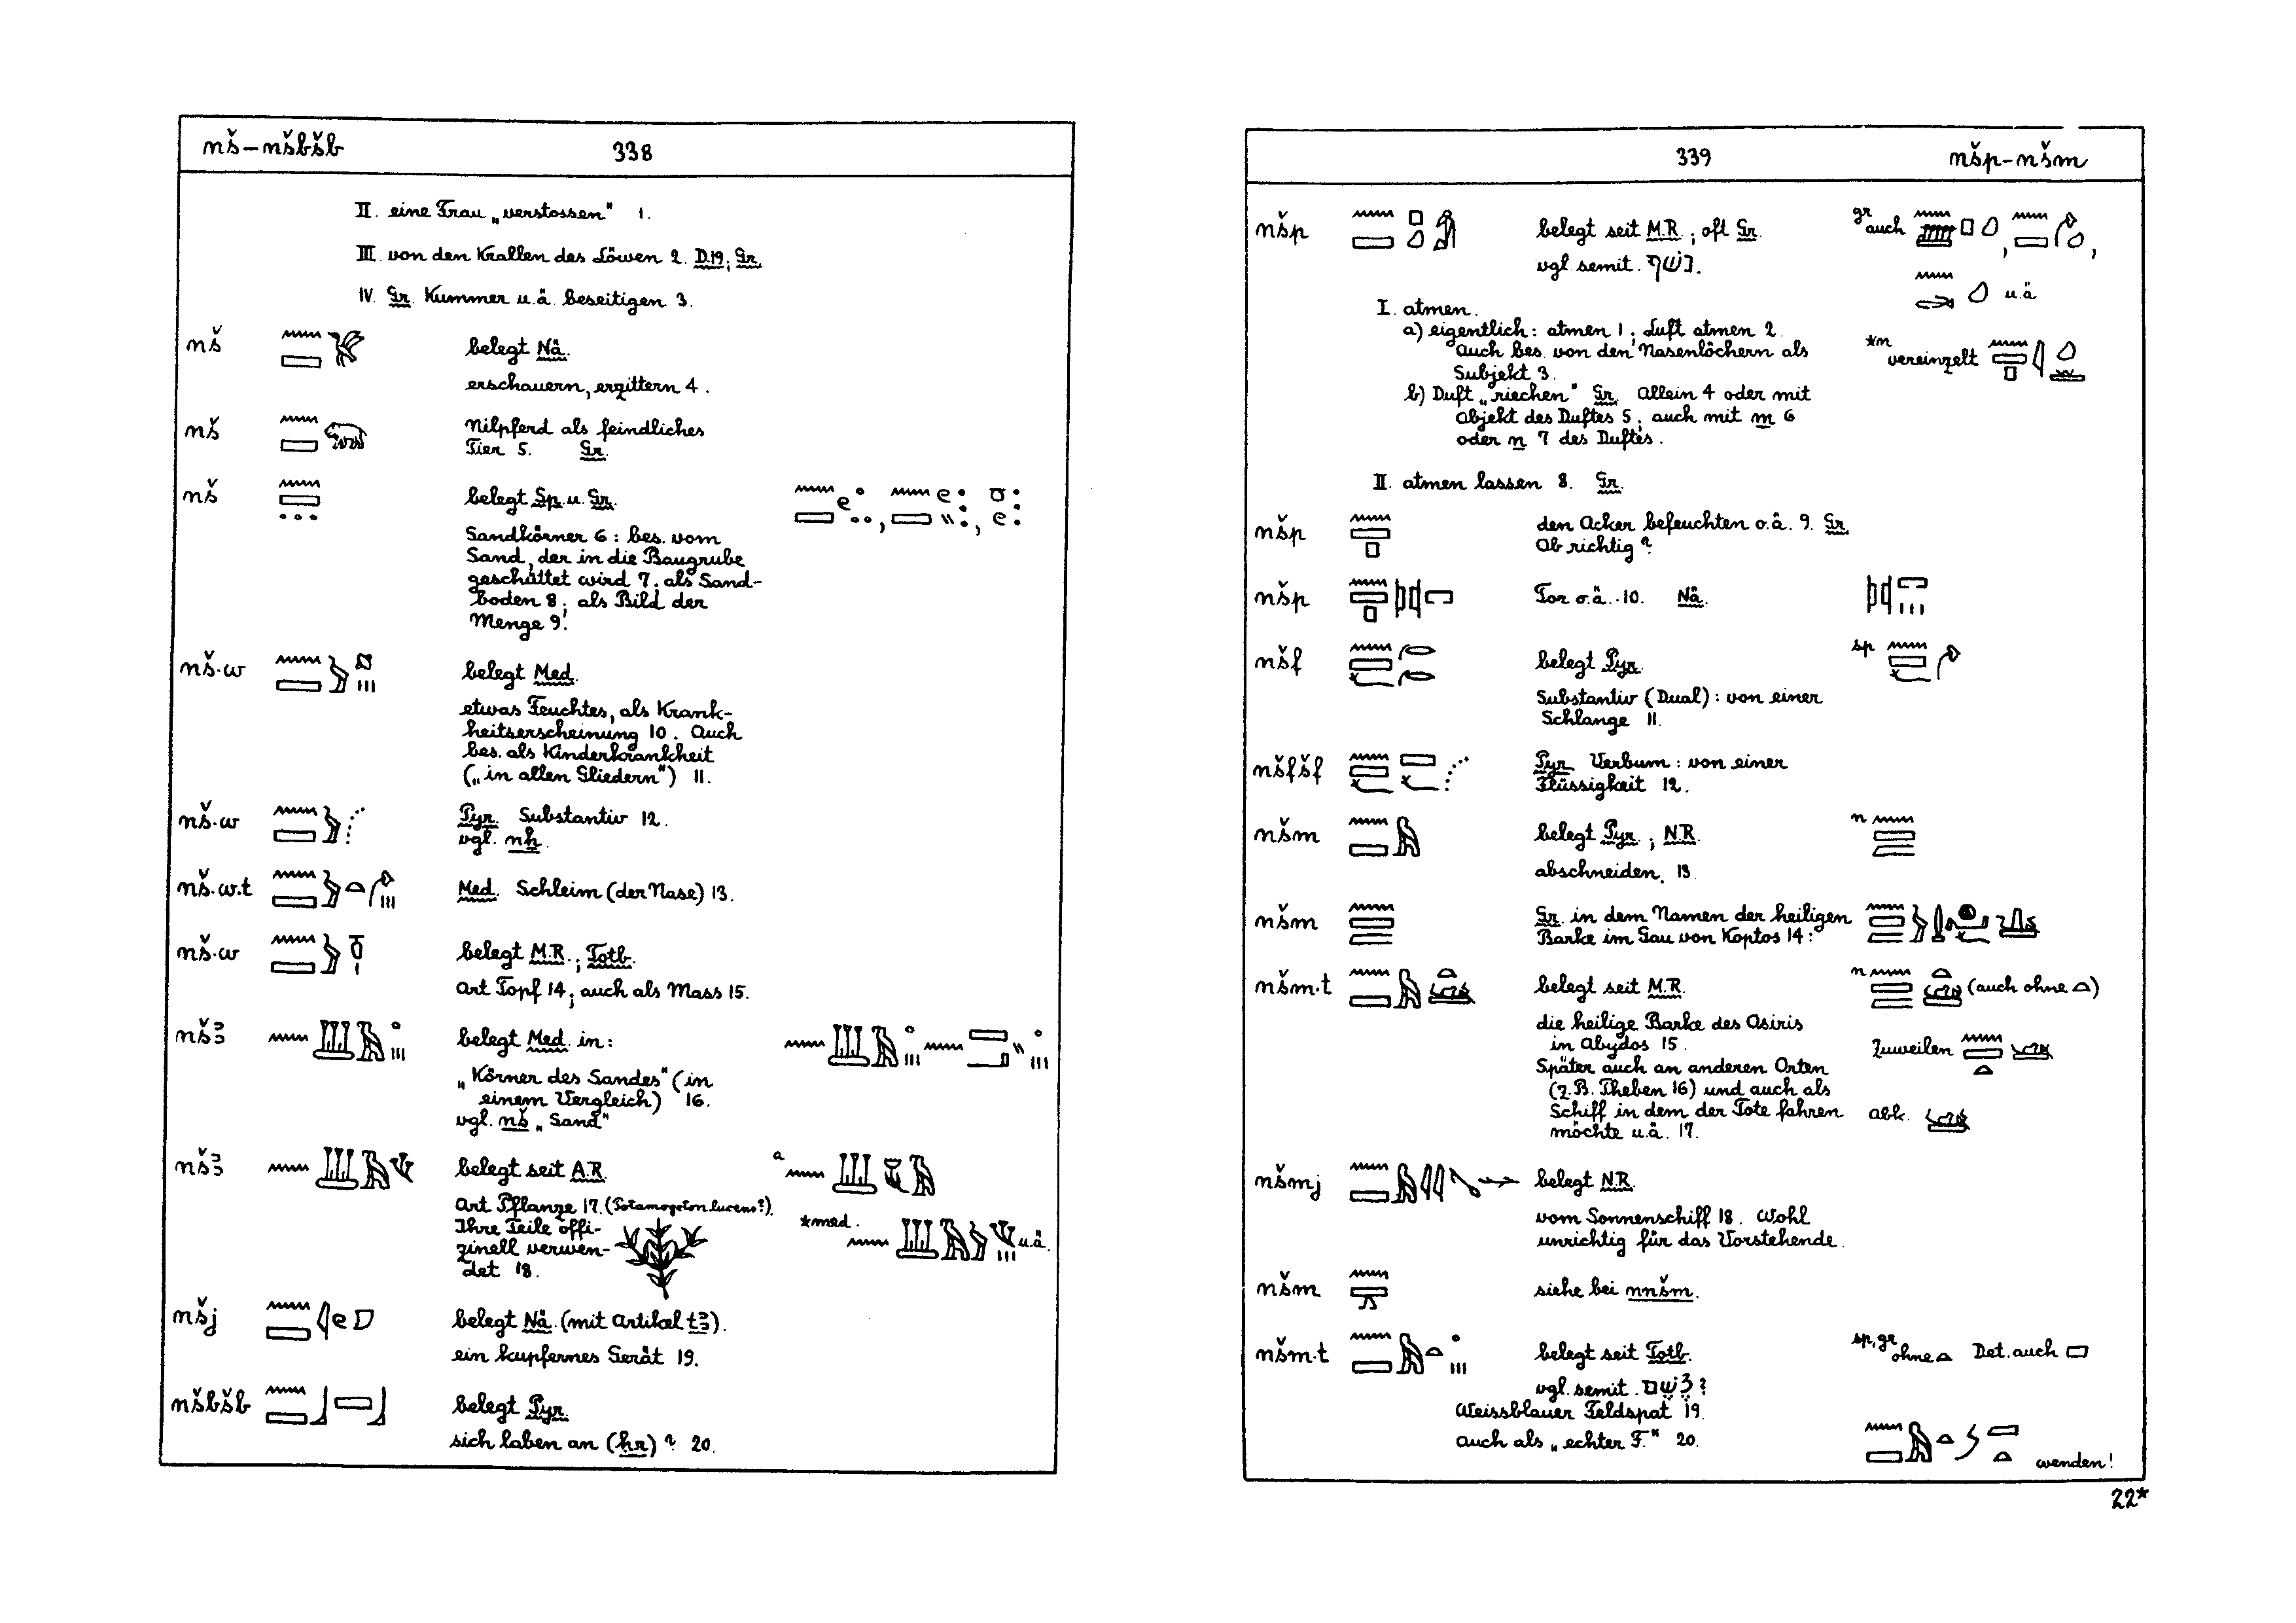 nš–nšbšb 338
II. eine Frau „verstossen" 1.
III. von den Krallen des Löwen 2. D.19; Gr.
IV. Gr. Kummer u.ä. beseitigen 3.
nš belegt Nä.
erschauern, erzittern 4.
nš Nilpferd als feindliches
Tier 5. Gr.
nš belegt Sp. u. Gr.
Sandkörner 6: bes. vom
Sand, der in die Baugrube
geschüttet wird 7; als Sand-
boden 8; als Bild der
Menge 9.
nš.w belegt Med.
etwas Feuchtes, als Krank-
heitserscheinung 10. Auch
bes. als Kinderkrankheit
(„in allen Gliedern") 11.
nš.w Pyr. Substantiv 12.
vgl. nḫ.
nš.w.t Med. Schleim (der Nase) 13.
nš.w belegt M.R.; Totb.
Art Topf 14; auch als Mass 15.
nšꜣ belegt Med. in:
„Körner des Sandes" (in
einem Vergleich) 16.
vgl. nš „Sand"
nšꜣ belegt seit A.R. a
Art Pflanze 17. (Potamogeton lucens?)
Ihre Teile offi- *med.
zinell verwen- u.ä.
det 18.
nšj belegt Nä. (mit Artikel tꜣ).
ein kupfernes Gerät 19.
nšbšb belegt Pyr.
sich laben an (ḥr)? 20.
339 nšp–nšm
nšp belegt seit M.R.; oft Gr. gr auch
vgl. semit. נשׁף.
u.ä
I. atmen.
a) eigentlich: atmen 1; Luft atmen 2.
Auch bes. von den Nasenlöchern als *n vereinzelt
Subjekt 3.
b) Duft „riechen" Gr. Allein 4 oder mit
Objekt des Duftes 5; auch mit m 6
oder n 7 des Duftes.
II. atmen lassen 8. Gr.
nšp den Acker befeuchten o.ä. 9. Gr.
Ob richtig?
nšp Tor o.ä. 10. Nä.
nšf belegt Pyr. sp
Substantiv (Dual): von einer
Schlange 11.
nšfšf Pyr. Verbum: von einer
Flüssigkeit 12.
nšm belegt Pyr.; N.R. n
abschneiden. 13
nšm Gr. in dem Namen der heiligen
Barke im Gau von Koptos 14:
nšm.t belegt seit M.R. n (auch ohne 𓏏)
die heilige Barke des Osiris
in Abydos 15. Zuweilen
Später auch an anderen Orten
(z.B. Theben 16) und auch als
Schiff in dem der Tote fahren abk.
möchte u.ä. 17.
nšmj belegt N.R.
vom Sonnenschiff 18. Wohl
unrichtig für das Vorstehende.
nšm siehe bei nnšm.
nšm.t belegt seit Totb. sp, gr ohne 𓏏 Det. auch 𓈙
vgl. semit. לשׁם?
Weissblauer Feldspat 19.
auch als „echter F." 20.
wenden!
22*